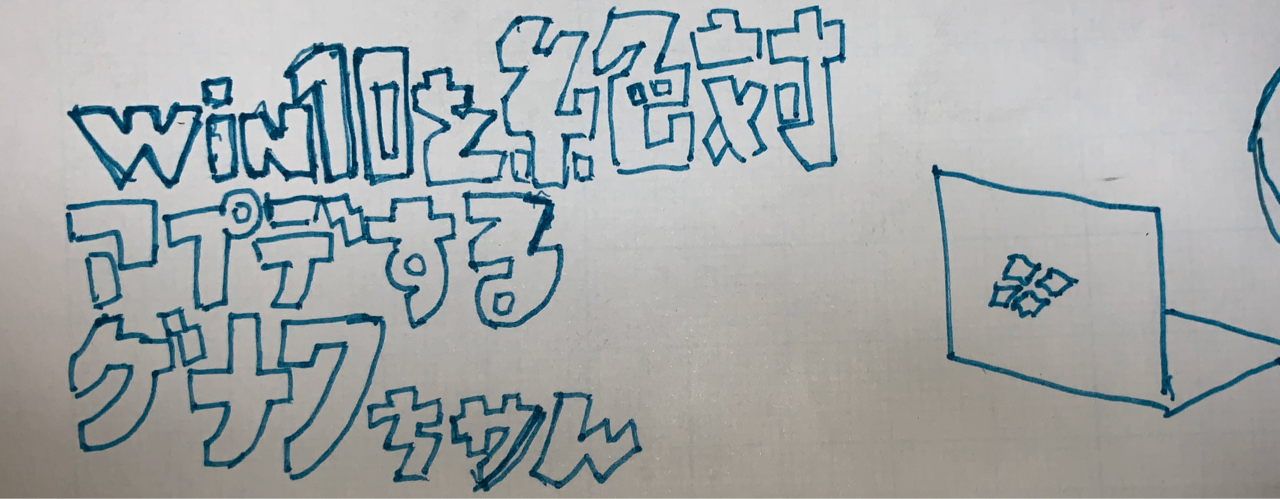 Win10を絶対
アプデする
グナフちゃん